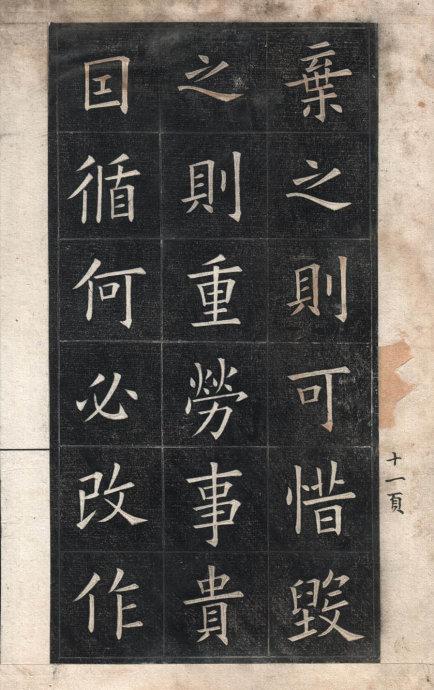 棄之則可惜毀
之則重勞事貴
囙循何必改作
十一頁